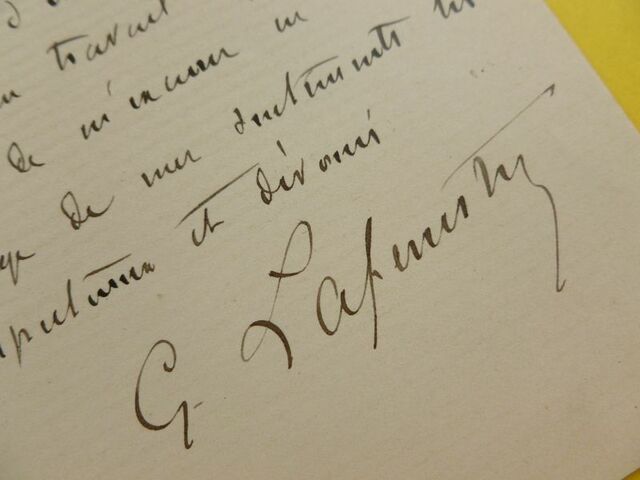 travail
de m'excuser
de mes sentiments
respectueux et dévoués
G Lafenestre